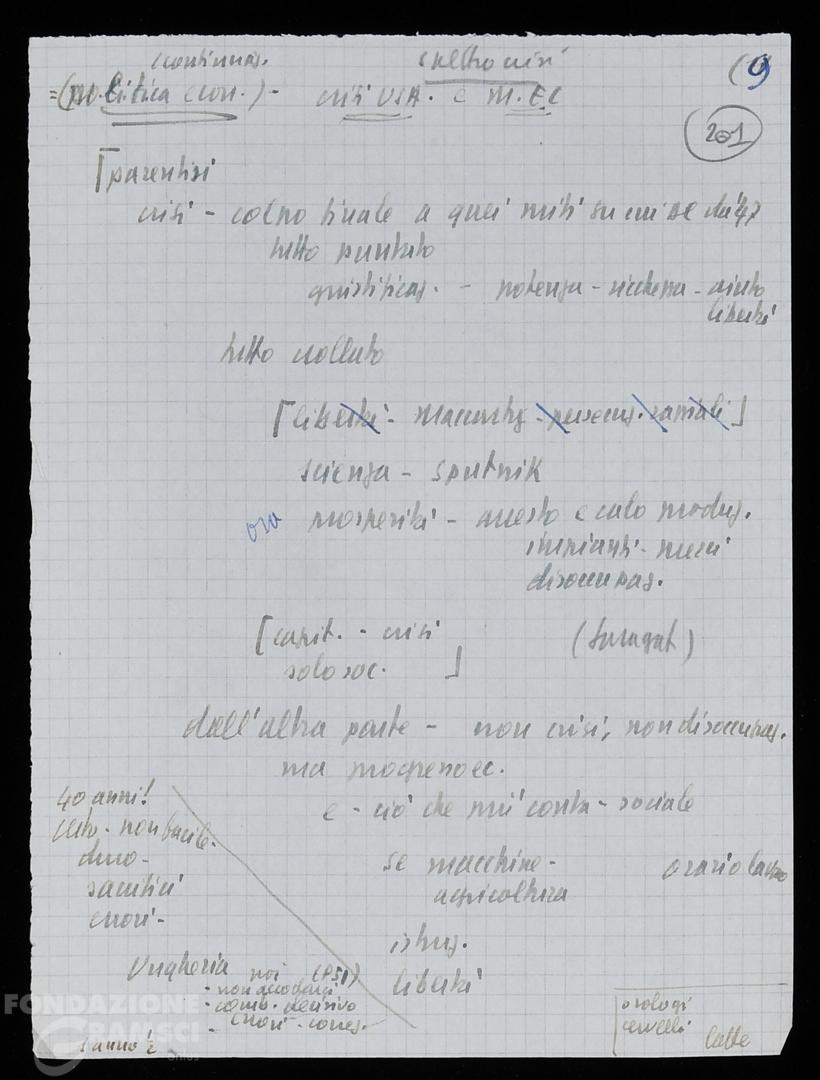 (continuaz.
spettro crisi
(9
=(politica econ.) - crisi USA. e M.E.C
201
[parentesi
crisi - colpo finale a quei miti su cui DC dal '47
tutto puntato
giustificaz. - potenza - ricchezza - aiuto
libertà
tutto crollato
[libertà - Maccarthy - persecuz. razziali]
scienza - sputnik
ora prosperità - arresto e calo produz.
impianti - merci
disoccupaz.
[capit. - crisi
solo soc. ]
(Saragat)
dall'altra parte - non crisi, non disoccupaz.
ma progresso ec.
e - ciò che più conta - sociale
40 anni!
certo - non facile -
duro -
sacrifici
errori -
se macchine -
agricoltura
orario lavoro
istruz.
libertà
Ungheria noi (PSI)
- non accodarci
- comb. decisivo
- errori - corres.
1 anno ½
orologi
cervelli
latte
FONDAZIONE
GRAMSCI
onlus